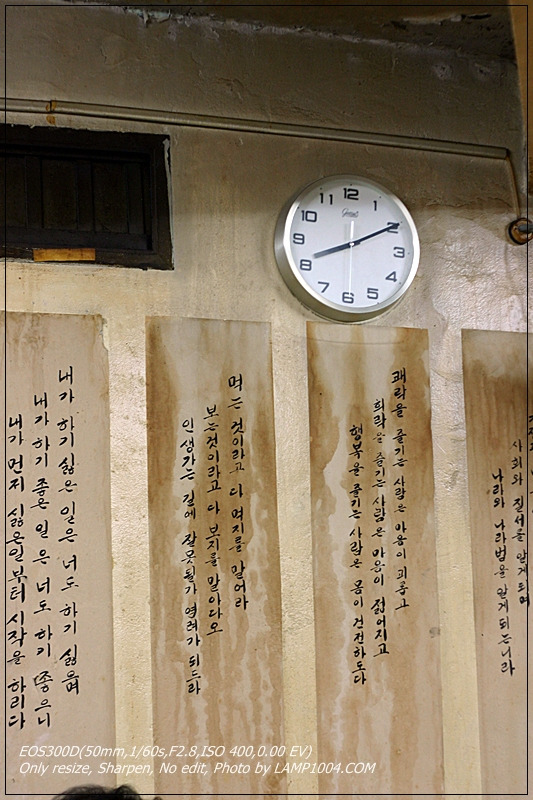 12
1
2
3
4
5
6
7
8
9
10
11
사회와 질서를 알게 되며
나라와 나라법을 알게 되는니라
쾌락을 즐기는 사람은 마음이 괴롭고
희락을 즐기는 사람은 마음이 젊어지고
행복을 즐기는 사람은 몸이 건전하도다
먹는 것이라고 다 먹지를 말어라
보는것이라고 다 보지를 말아다오
인생가는 길에 잘못될가 염려가 되드라
내가 하기 싫은 일은 너도 하기 싫으며
내가 하기 좋은 일은 너도 하기 좋으니
내가 먼저 싫은일부터 시작을 하리다
EOS300D(50mm,1/60s,F2.8,ISO 400,0.00 EV)
Only resize, Sharpen, No edit, Photo by LAMP1004.COM